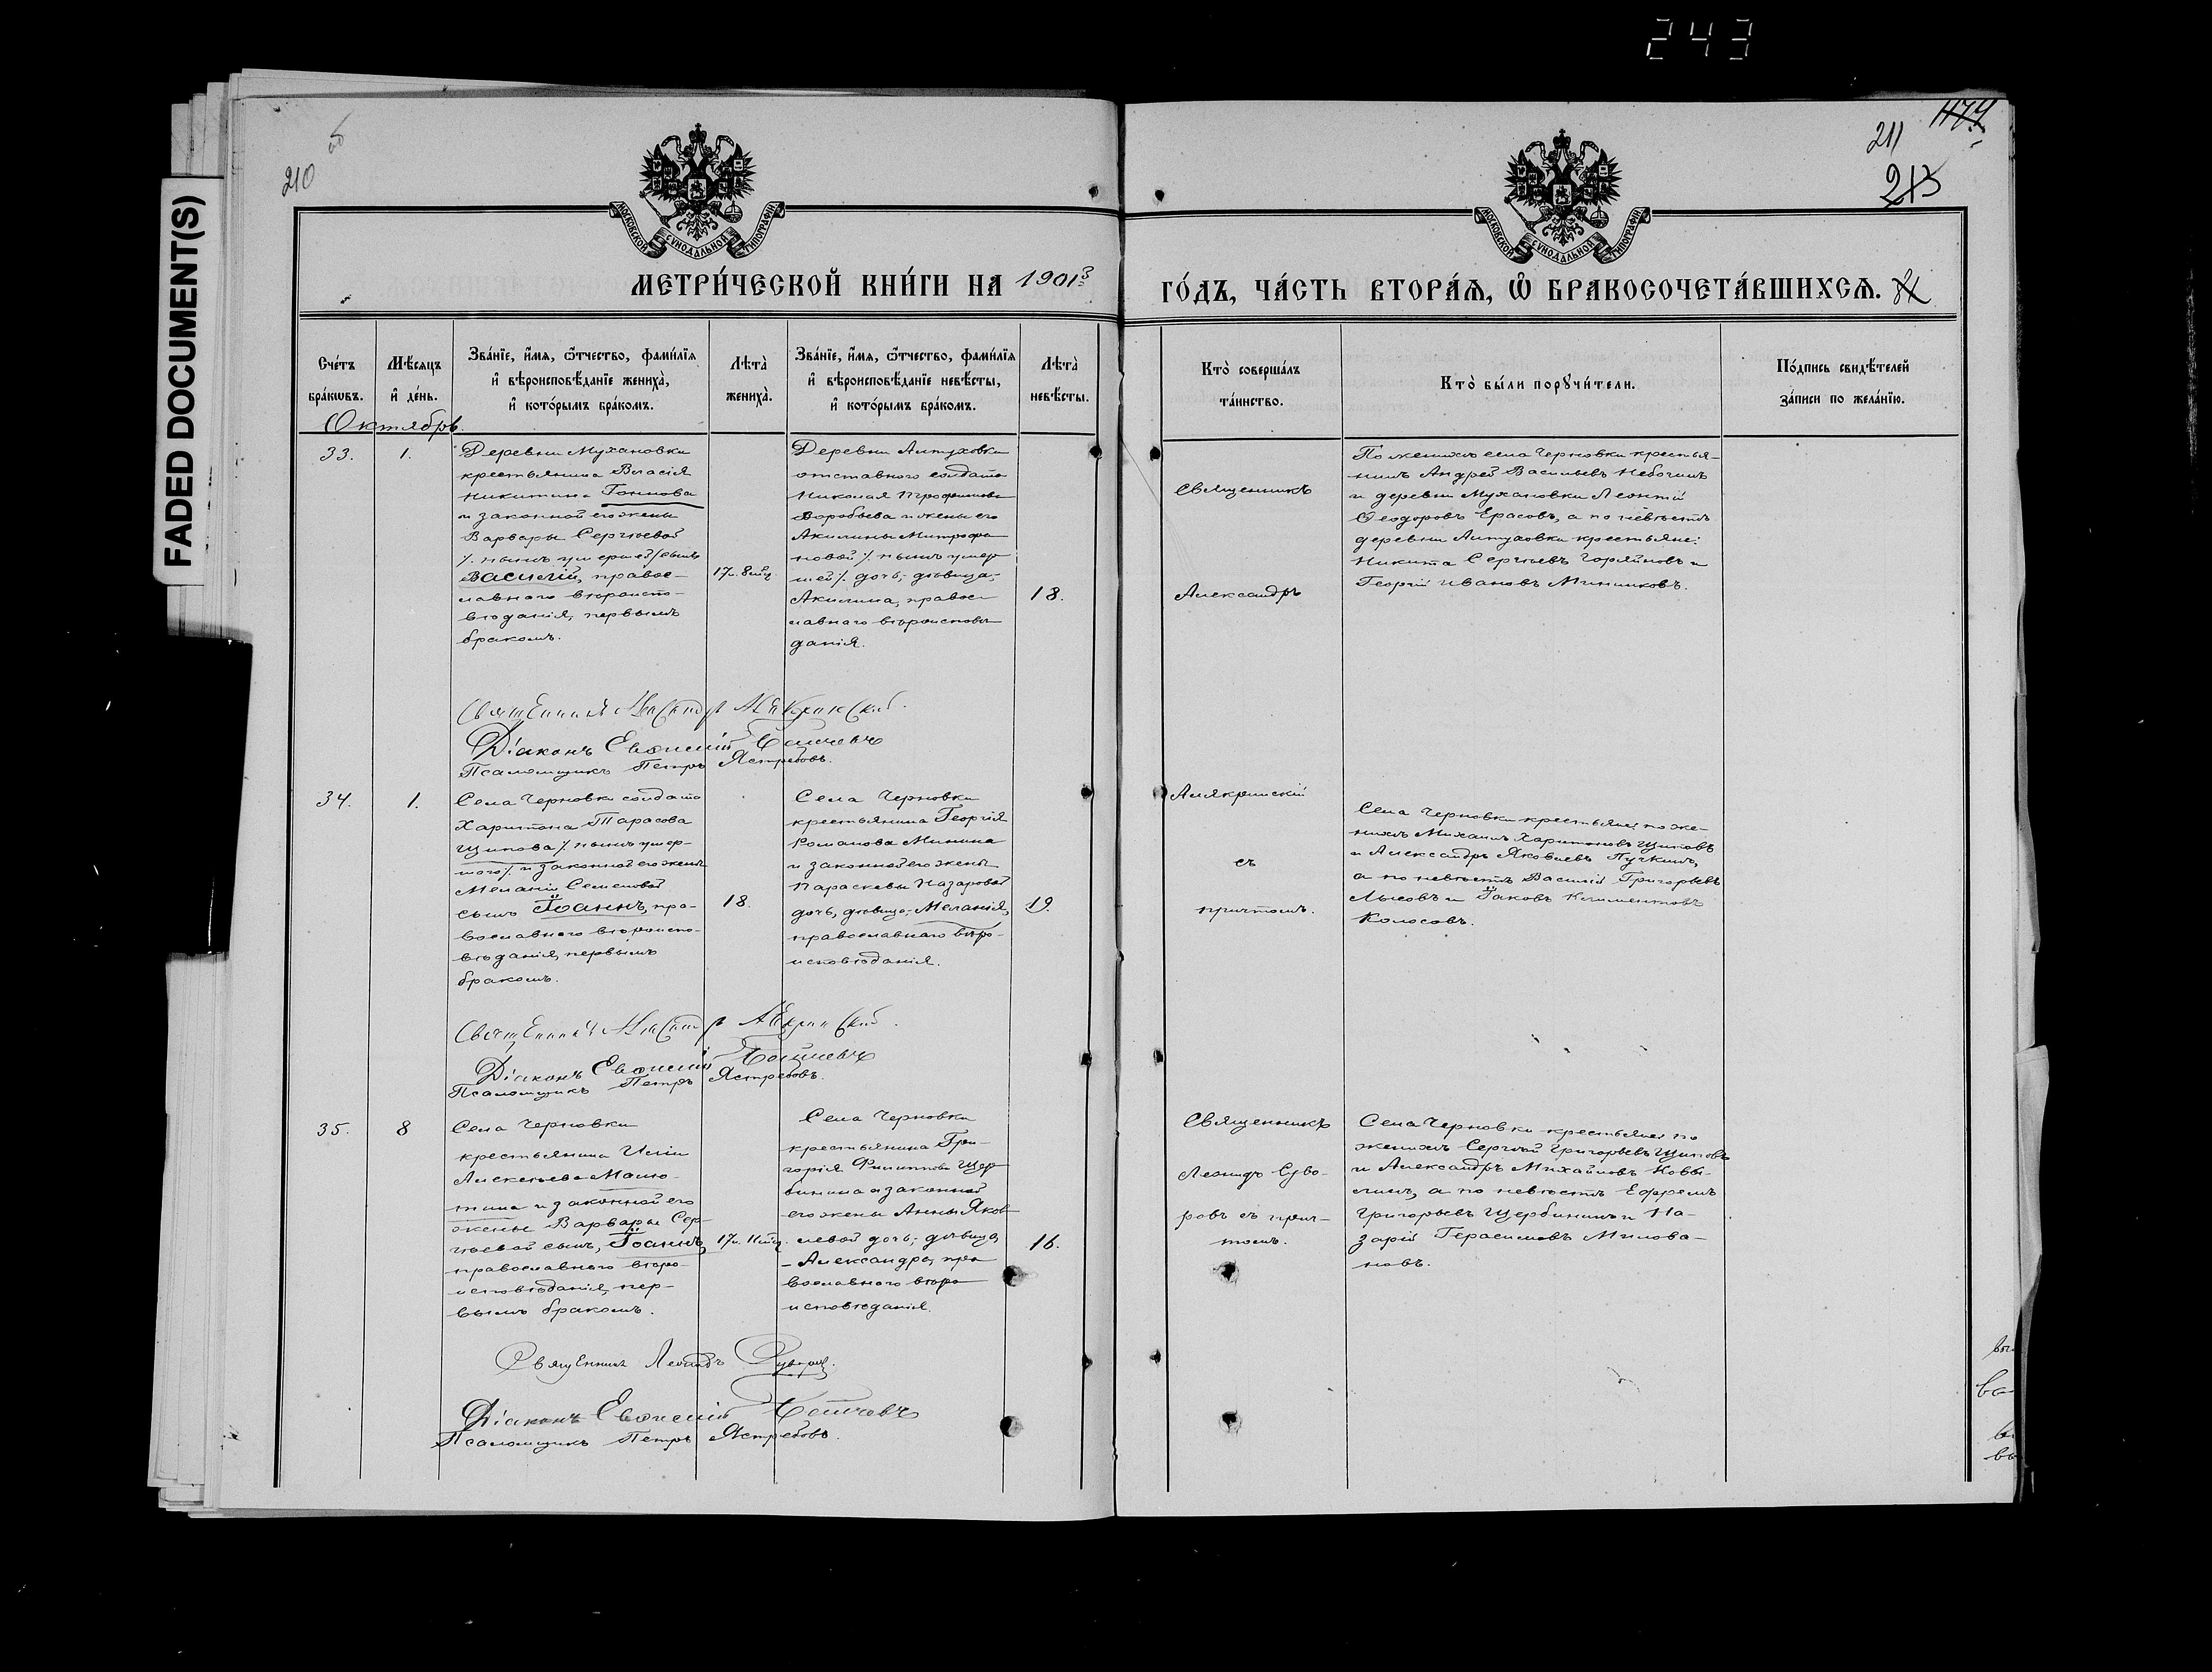 243
FADED DOCUMENT(S)
210
об
211
213
МОСКОВСКОЙ СѴНОДАЛЬНОЙ ТИПОГРАФІИ
МОСКОВСКОЙ СѴНОДАЛЬНОЙ ТИПОГРАФІИ
МЕТРИ́ЧЕСКОЙ КНИ́ГИ НА 1903
ГО́ДЪ, ЧА́СТЬ ВТОРА́Ѧ, Ѽ БРАКОСОЧЕТА́ВШИХСѦ.
Сче́тъ
бра́кѡвъ.
Мѣ́сяцъ
и҆ де́нь.
Зва́нїе, и҆́мѧ, ѻ҆́тчество, фами́лїѧ
и҆ вѣроисповѣ́данїе жениха̀,
и҆ кото́рымъ бра́комъ.
Лѣта̀
жениха̀.
Зва́нїе, и҆́мѧ, ѻ҆́тчество, фами́лїѧ
и҆ вѣроисповѣ́данїе невѣ́сты,
и҆ кото́рымъ бра́комъ.
Лѣта̀
невѣ́сты.
Кто̀ соверша́лъ
та́инство.
Кто̀ бы́ли порꙋчи́тели.
По́дпись свидѣ́телей
за́писи по жела́нїю.
Октябрь.
33.
1.
Деревни Мухановки
крестьянина Власія
Никитина Гоннова
и законной его жены
Варвары Сергѣевой
/. нынѣ умершей/ сынъ
Василій, правос-
лавного вѣроиспо-
вѣданія, первымъ
бракомъ.
17 и. 8 мѣс.
Деревни Аитуховки
отставного солдата
Николая Трофимова
Воробьева и жены его
Акилины Митрофа
новой /. нынѣ умер
шей /. дочь, дѣвица,
Акилина, правос-
лавнаго вѣроисповѣ
данія.
18.
Священникъ
Александръ
По женихѣ села Черновки крестья-
нинъ Андрей Васильевъ Небогинъ
и деревни Мухановки Леонтій
Ѳеодоровъ Ерасовъ, а по невѣстѣ
деревни Аитуховки крестьяне:
Никита Сергѣевъ Горяйновъ и
Георгій Ивановъ Мининковъ.
Священникъ Александръ Алякринскій.
Діаконъ Евѳимій
Псаломщикъ Петръ Ястребовъ.
34.
1.
Села Черновки солдата
Харитона Тарасова
Щипова /. нынѣ умер-
шого/. и законной его жены
Меланіи Семеновой
сынъ Іоаннъ, пра-
вославного вѣроиспо-
вѣданія, первымъ
бракомъ.
18.
Села Черновки
крестьянина Георгія
Романова Минина
и законной его жены
Параскевы Назаровой
дочь, дѣвица, Меланія,
православнаго вѣро-
исповѣданія.
19.
Алякринскій
съ
причтомъ.
Села Черновки крестьяне: по же-
нихѣ Михаилъ Харитоновъ Щиповъ
и Александръ Яковлевъ Пучкинъ,
а по невѣстѣ Василій Григорьевъ
Лысовъ и Іаковъ Климентовъ
Колосовъ.
Священникъ Александръ Алякринскій.
Діаконъ Евѳимій
Псаломщикъ Петръ Ястребовъ.
35.
8
Села Черновки
крестьянина Иліи
Алексѣева Малю-
тина и законной его
жены Варвары Сер-
гѣевой сынъ, Іоаннъ,
православнаго вѣро-
исповѣданія, пер-
вымъ бракомъ.
17 и. 11 мѣс.
Села Черновки
крестьянина Гри-
горія Филиппова Щер
бинина и законной
его жены Анны Яков
левой дочь, дѣвица,
Александра, пра
вославнаго вѣро
исповѣданія.
16.
Священникъ
Леонидъ Суво-
ровъ съ прич-
томъ.
Села Черновки крестьяне: по
женихѣ Сергѣй Григорьевъ Щиповъ
и Александръ Михайловъ Ковы-
линъ, а по невѣстѣ Ефремъ
Григорьевъ Щербининъ и На-
зарій Герасимовъ Милова-
новъ.
Священникъ Леонидъ Суворовъ.
Діаконъ Евѳимій
Псаломщикъ Петръ Ястребовъ.